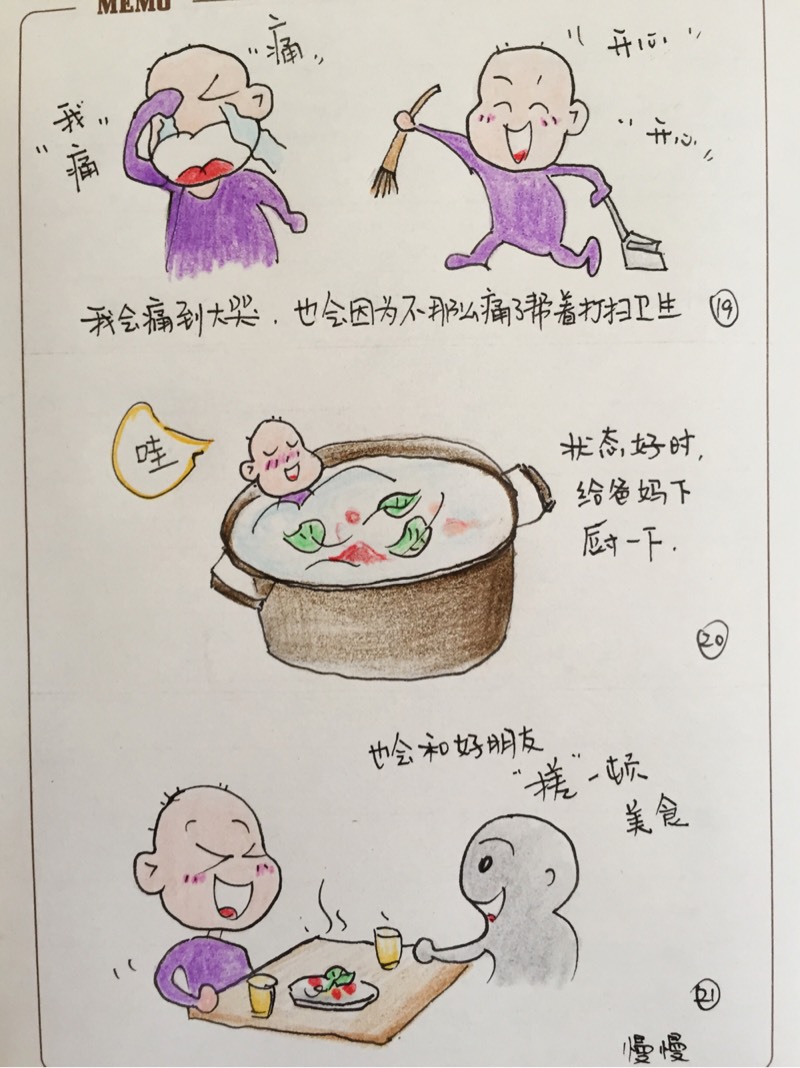 MEMO
"痛"
"我
痛"
"开心"
"开心"
我会痛到大哭.也会因为不那么痛了帮着打扫卫生 19
哇
状态好时,
给爸妈下
厨一下.
20
也会和好朋友
"搓"一顿
美食
21
慢慢